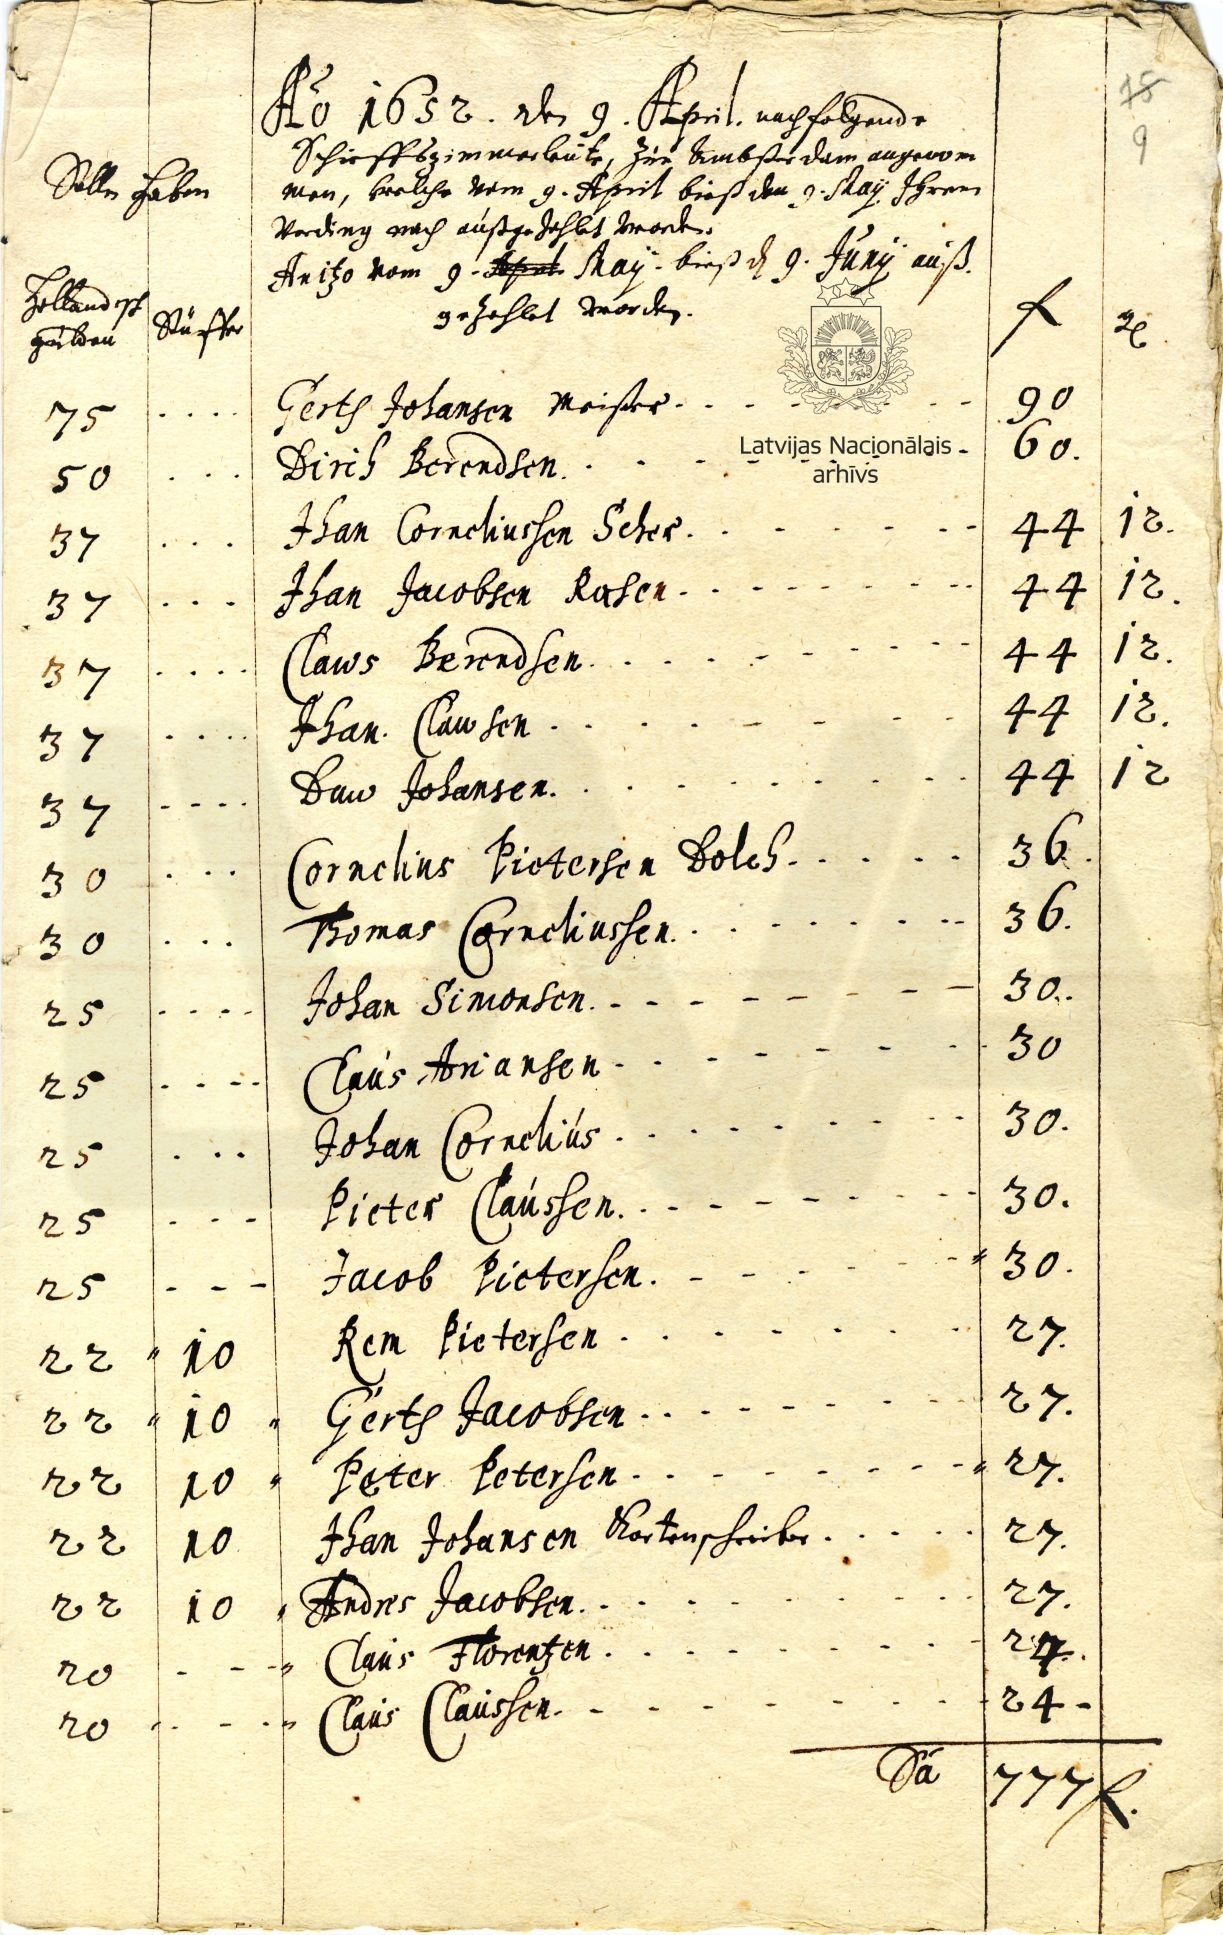 75
9
Ao 1652. den 9. April. nachfolgende
Schieffszimmerleute, zue Ambsterdam angenom
men, welche vom 9. April bieß den 9. May Ihrem
Verding nach außgezahlet worden.
Anitzo vom 9. April May. bieß d 9. Juny auß.
gezahlet worden.
Sollen haben
Hollandisch
gulden
Stüffer
fl
gl
75 .... Gerth Johansen Meister. - - - - - - - 90
50 ... Dirich Berendsen. - - - - - - - 60.
37 ... Jhan Corneliussen Scher. - - - - - - - 44 12.
37 ... Jhan Jacobsen Rosen - - - - - - - 44 12.
37 .... Claws Berendsen. - - - - - - - 44 12.
37 .... Jhan. Clawsen - - - - - - - 44 12.
37 .... Daw Johansen. - - - - - - - 44 12
30 ... Cornelius Pietersen Dolch. - - - - - 36.
30 ... Thomas Corneliussen. - - - - - - - 36.
25 .... Johan Simonsen. - - - - - - - 30.
25 .... Claus Ariansen - - - - - - - 30
25 ... Johan Cornelius - - - - - - - 30.
25 - - - Pieter Claussen. - - - - - - - 30.
25 - - - Jacob Pietersen. - - - - - - " 30.
22 " 10 Rem Pietersen - - - - - - - 27.
22 " 10 " Gerth Jacobsen - - - - - - - 27.
22 10 " Peter Petersen - - - - - - - " 27.
22 10 Jhan Johansen Kartenschreiber. - - - - 27.
22 10 " Andres Jacobsen. - - - - - - - 27.
20 - - - " Claus Florentzen - - - - - - - 24.
20 - - - " Claus Claussen. - - - - - - - 24 -
Sa 777 fl.
Latvijas Nacionālais
arhīvs